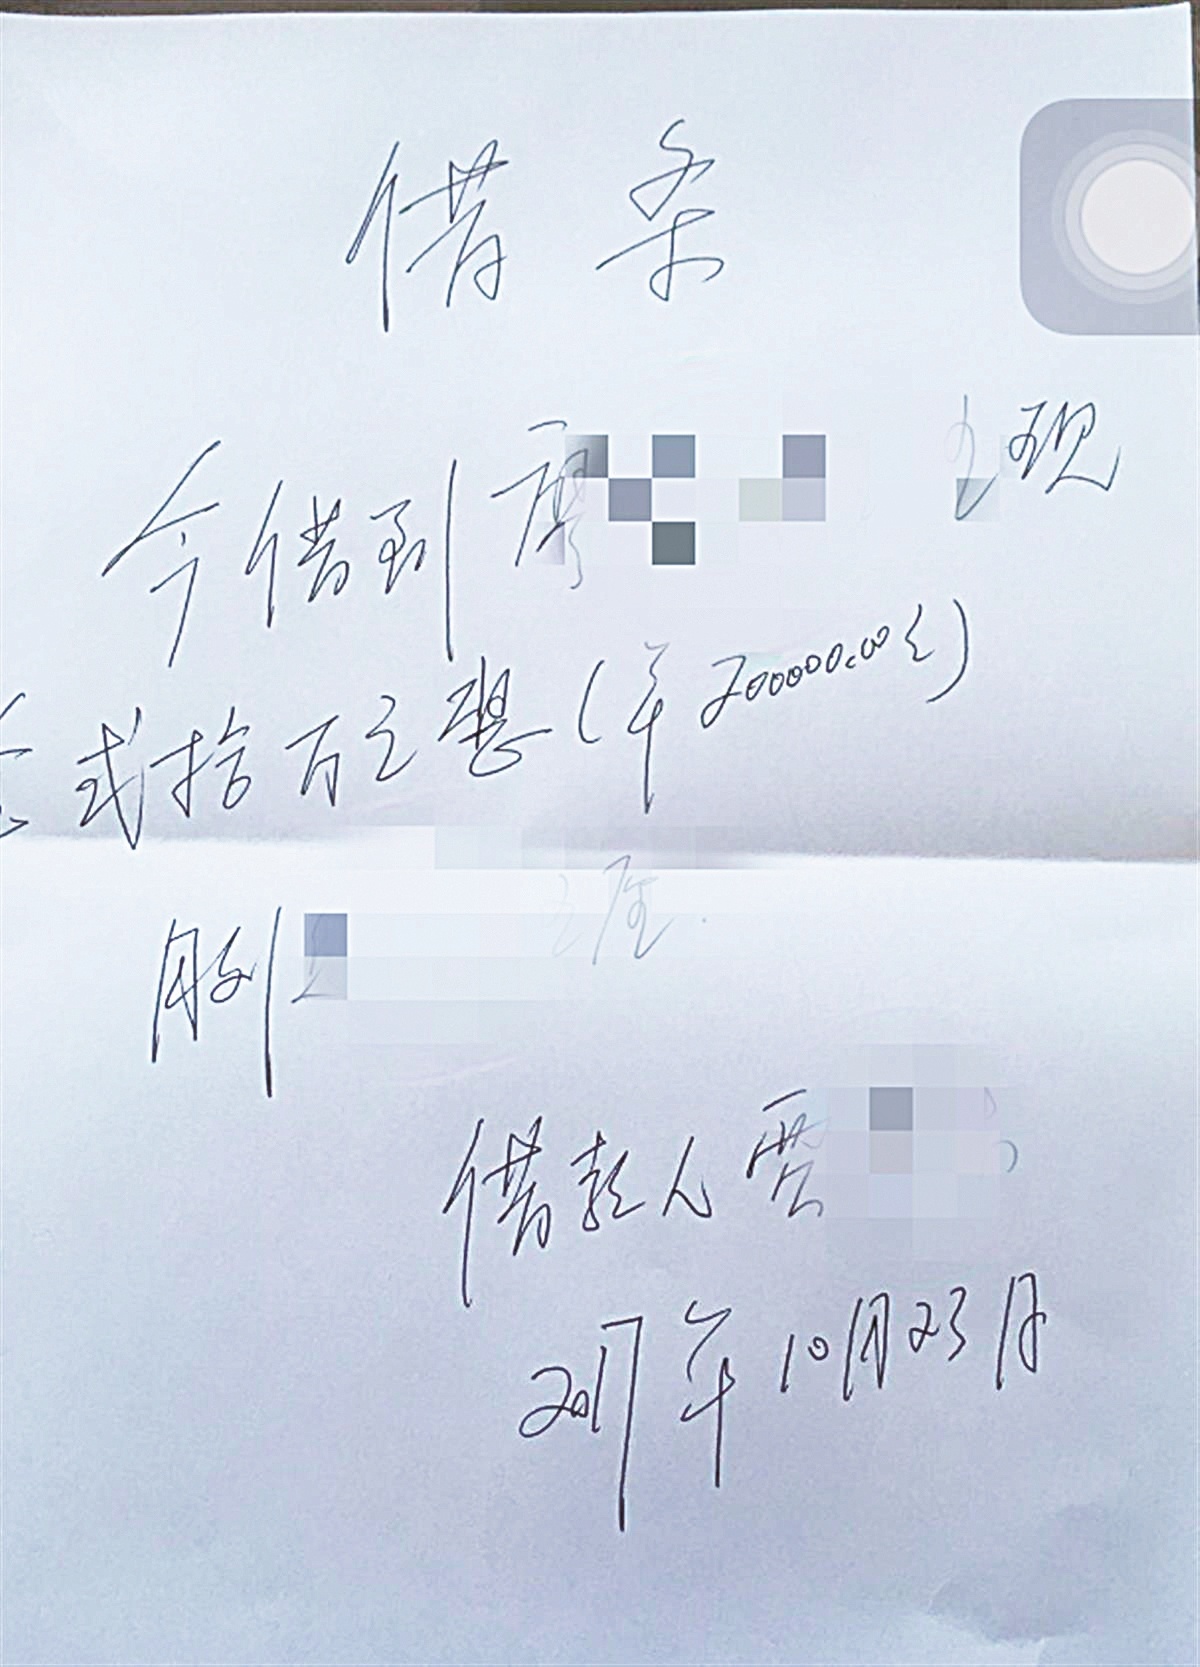 借条
今借到廖 现
金弍拾万元整（¥200000.00元）
月利
借款人 贾
2017年10月23日